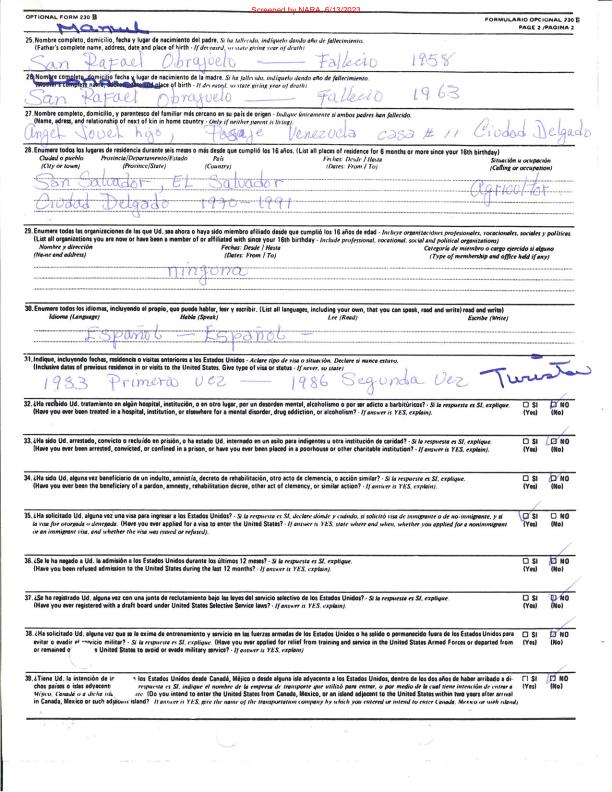 Screened by NARA, 6/13/2023
OPTIONAL FORM 230 B
FORMULARIO OPCIONAL 230 B
PAGE 2 /PAGINA 2
Manuel
25. Nombre completo, domicilio, fecha y lugar de nacimiento del padre. Si ha fallecido, indíquelo dando año de fallecimiento.
(Father's complete name, address, date and place of birth - If deceased, so state giving year of death)
San Rafael Obrajuelo — Fallecio 1958
26. Nombre completo, domicilio fecha y lugar de nacimiento de la madre. Si ha fallecido, indíquelo dando año de fallecimiento.
(Mother's complete name, address, date and place of birth - If deceased, so state giving year of death)
San Rafael Obrajuelo — Fallecio 1963
27. Nombre completo, domicilio, y parentesco del familiar más cercano en su país de origen - Indique únicamente si ambos padres han fallecido.
(Name, adress, and relationship of next of kin in home country - Only if neither parent is living).
Angel Jovel hijo, Pasaje Venezuela casa # 11 Ciudad Delgado
28. Enumere todos los lugares de residencia durante seis meses o más desde que cumplió los 16 años. (List all places of residence for 6 months or more since your 16th birthday)
Ciudad o pueblo Provincia/Departamento/Estado País Fechas: Desde / Hasta Situación u ocupación
(City or town) (Province/State) (Country) (Dates: From / To) (Calling or occupation)
San Salvador, EL Salvador Agricultor
Ciudad Delgado 1970-1991
29. Enumere todas las organizaciones de las que Ud. sea ahora o haya sido miembro afiliado desde que cumplió los 16 años de edad - Incluye organizaciones profesionales, vocacionales, sociales y políticas
(List all organizations you are now or have been a member of or affiliated with since your 16th birthday - Include professional, vocational, social and political organizations)
Nombre y dirección Fechas: Desde / Hasta Categoría de miembro o cargo ejercido si alguno
(Name and address) (Dates: From / To) (Type of membership and office held if any)
ninguna
30. Enumere todos los idiomas, incluyendo el propio, que puede hablar, leer y escribir. (List all languages, including your own, that you can speak, read and write) read and write)
Idioma (Language) Habla (Speak) Lee (Read) Escribe (Write)
Español — Español —
31. Indique, incluyendo fechas, residencia o visitas anteriores a los Estados Unidos - Aclare tipo de visa o situación. Declare si nunca estuvo.
(Inclusive dates of previous residence in or visits to the United States. Give type of visa or status - If never, so state)
1983 Primera vez — 1986 Segunda Vez Turista
32. ¿Ha recibido Ud. tratamiento en algún hospital, institución, o en otro lugar, por un desorden mental, alcoholismo o por ser adicto a barbitúricos? - Si la respuesta es SI, explique. SI NO
(Have you ever been treated in a hospital, institution, or elsewhere for a mental disorder, drug addiction, or alcoholism? - If answer is YES, explain). (Yes) (No)
33. ¿Ha sido Ud. arrestado, convicto o recluído en prisión, o ha estado Ud. internado en un asilo para indigentes u otra institución de caridad? - Si la respuesta es SI, explique. SI NO
(Have you ever been arrested, convicted, or confined in a prison, or have you ever been placed in a poorhouse or other charitable institution? - If answer is YES, explain). (Yes) (No)
34. ¿Ha sido Ud. alguna vez beneficiario de un indulto, amnistía, decreto de rehabilitación, otro acto de clemencia, o acción similar? - Si la respuesta es SI, explique. SI NO
(Have you ever been the beneficiary of a pardon, amnesty, rehabilitation decree, other act of clemency, or similar action? - If answer is YES, explain). (Yes) (No)
35. ¿Ha solicitado Ud. alguna vez una visa para ingresar a los Estados Unidos? - Si la respuesta es SI, declare dónde y cuándo, si solicitó visa de inmigrante o de no-inmigrante, y si SI NO
la visa fue otorgada o denegada. (Have you ever applied for a visa to enter the United States? - If answer is YES, state where and when, whether you applied for a nonimmigrant (Yes) (No)
or an immigrant visa, and whether the visa was issued or refused).
36. ¿Se le ha negado a Ud. la admisión a los Estados Unidos durante los últimos 12 meses? - Si la respuesta es SI, explique. SI NO
(Have you been refused admission to the United States during the last 12 months? - If answer is YES, explain). (Yes) (No)
37. ¿Se ha registrado Ud. alguna vez con una junta de reclutamiento bajo las leyes del servicio selectivo de los Estados Unidos? - Si la respuesta es SI, explique. SI NO
(Have you ever registered with a draft board under United States Selective Service laws? - If answer is YES, explain). (Yes) (No)
38. ¿Ha solicitado Ud. alguna vez que se le exime de entrenamiento y servicio en las fuerzas armadas de los Estados Unidos o ha salido o permanecido fuera de los Estados Unidos para SI NO
evitar o evadir el servicio militar? - Si la respuesta es SI, explique. (Have you ever applied for relief from training and service in the United States Armed Forces or departed from (Yes) (No)
or remained o s United States to avoid or evade military service? - If answer is YES, explain)
39. ¿Tiene Ud. la intención de in los Estados Unidos desde Canadá, Méjico o desde alguna isla adyacente a los Estados Unidos, dentro de los dos años de haber arribado a di- SI NO
chos países o islas adyacent respuesta es SI, indique el nombre de la empresa de transporte que utilizó para entrar, o por medio de la cual tiene intención de entrar a (Yes) (No)
Méjico, Canadá o a dicha isla (Do you intend to enter the United States from Canada, Mexico, or an island adjacent to the United States within two years after arrival
in Canada, Mexico or such adjacent island? - If answer is YES, give the name of the transportation company by which you entered or intend to enter Canada, Mexico or such island)